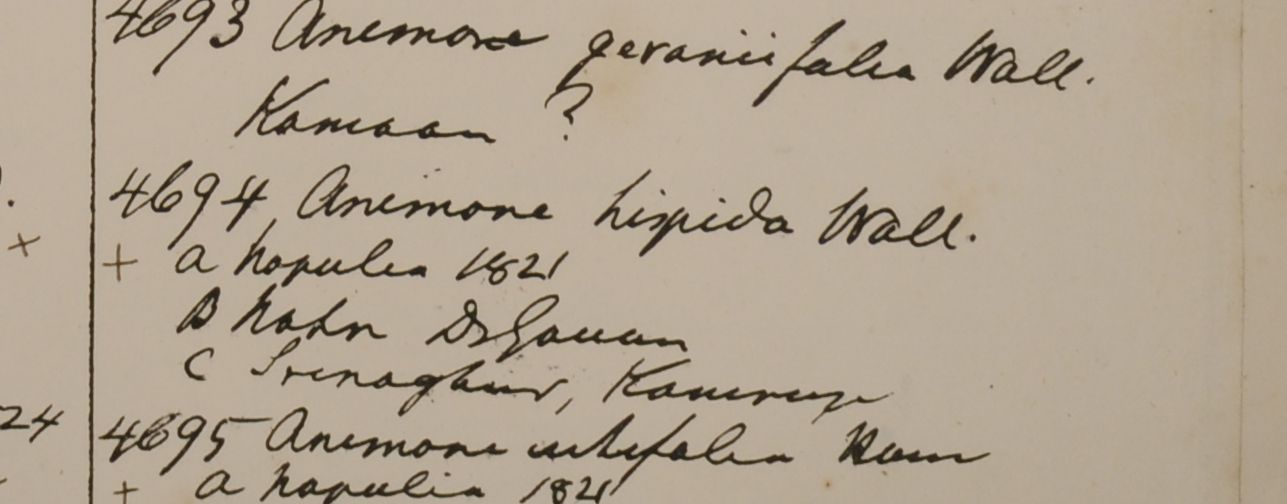 4693 Anemone geraniifolia Wall.
Kamaon ?
4694 Anemone hispida Wall.
+ a Napulia 1821
B Nahn Dr Govan
C Srenaghur, Kamroop
24
4695 Anemone Ham
+ a Napulia 1821